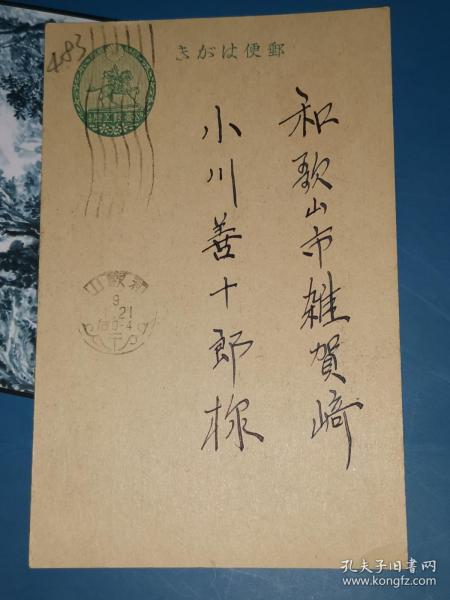 483
郵便はがき
和歌山市雑賀崎
小川善十郎様
和歌山
9
21
孔夫子旧书网
www.kongfz.com